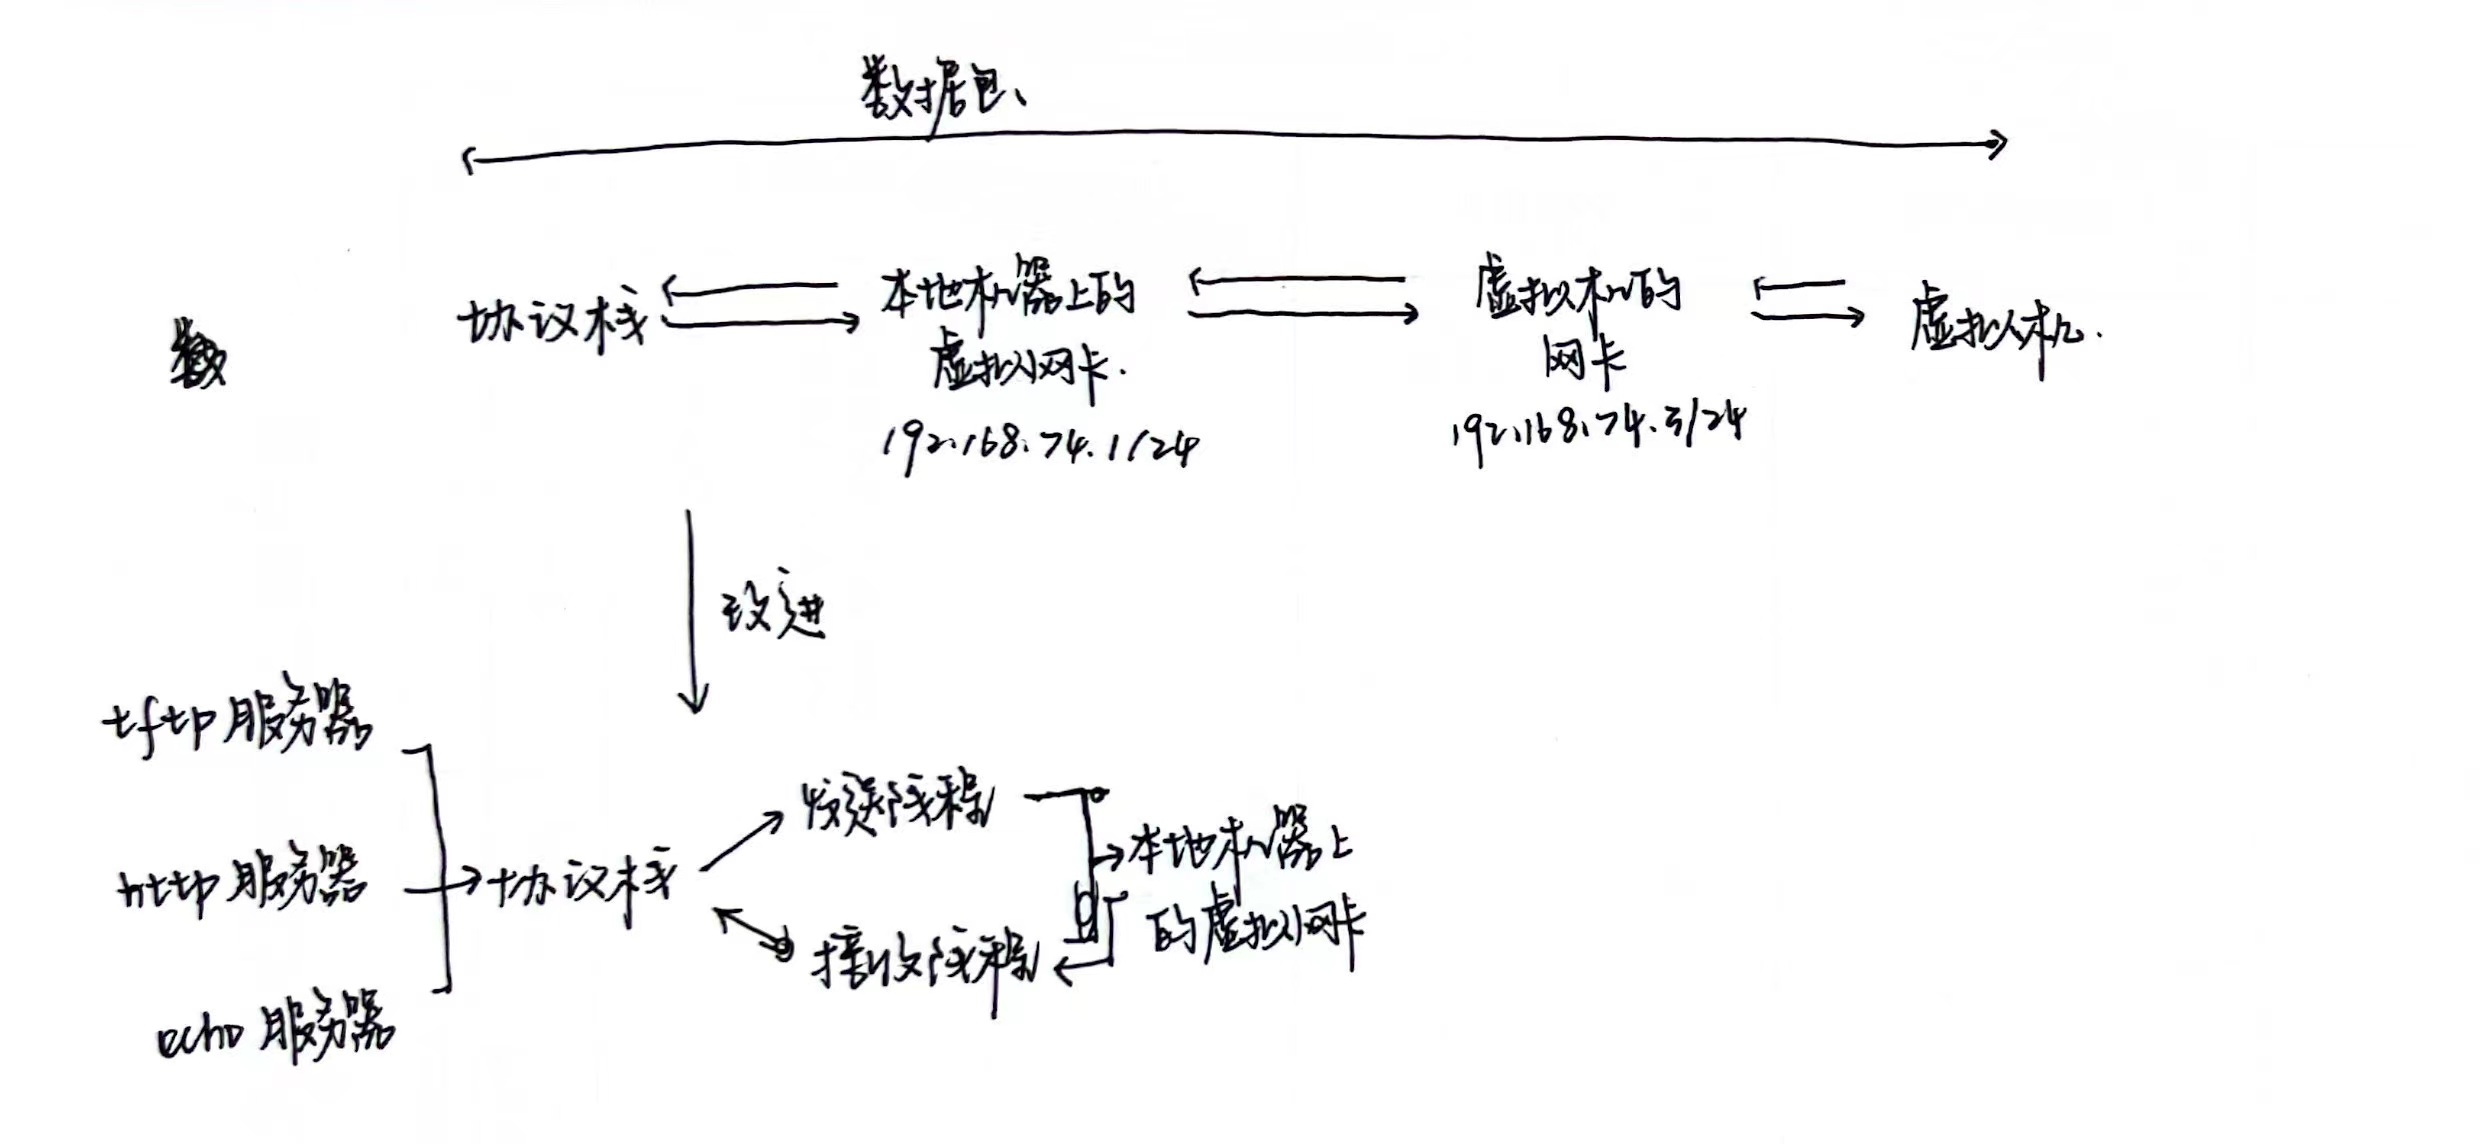 数据包、
协议栈
本地机器上的
虚拟网卡.
192.168.74.1/24
虚拟机的
网卡
192.168.74.3/24
虚拟机.
改进
tftp服务器
http服务器
echo服务器
协议栈
发送线程
接收线程
本地机器上
的虚拟网卡